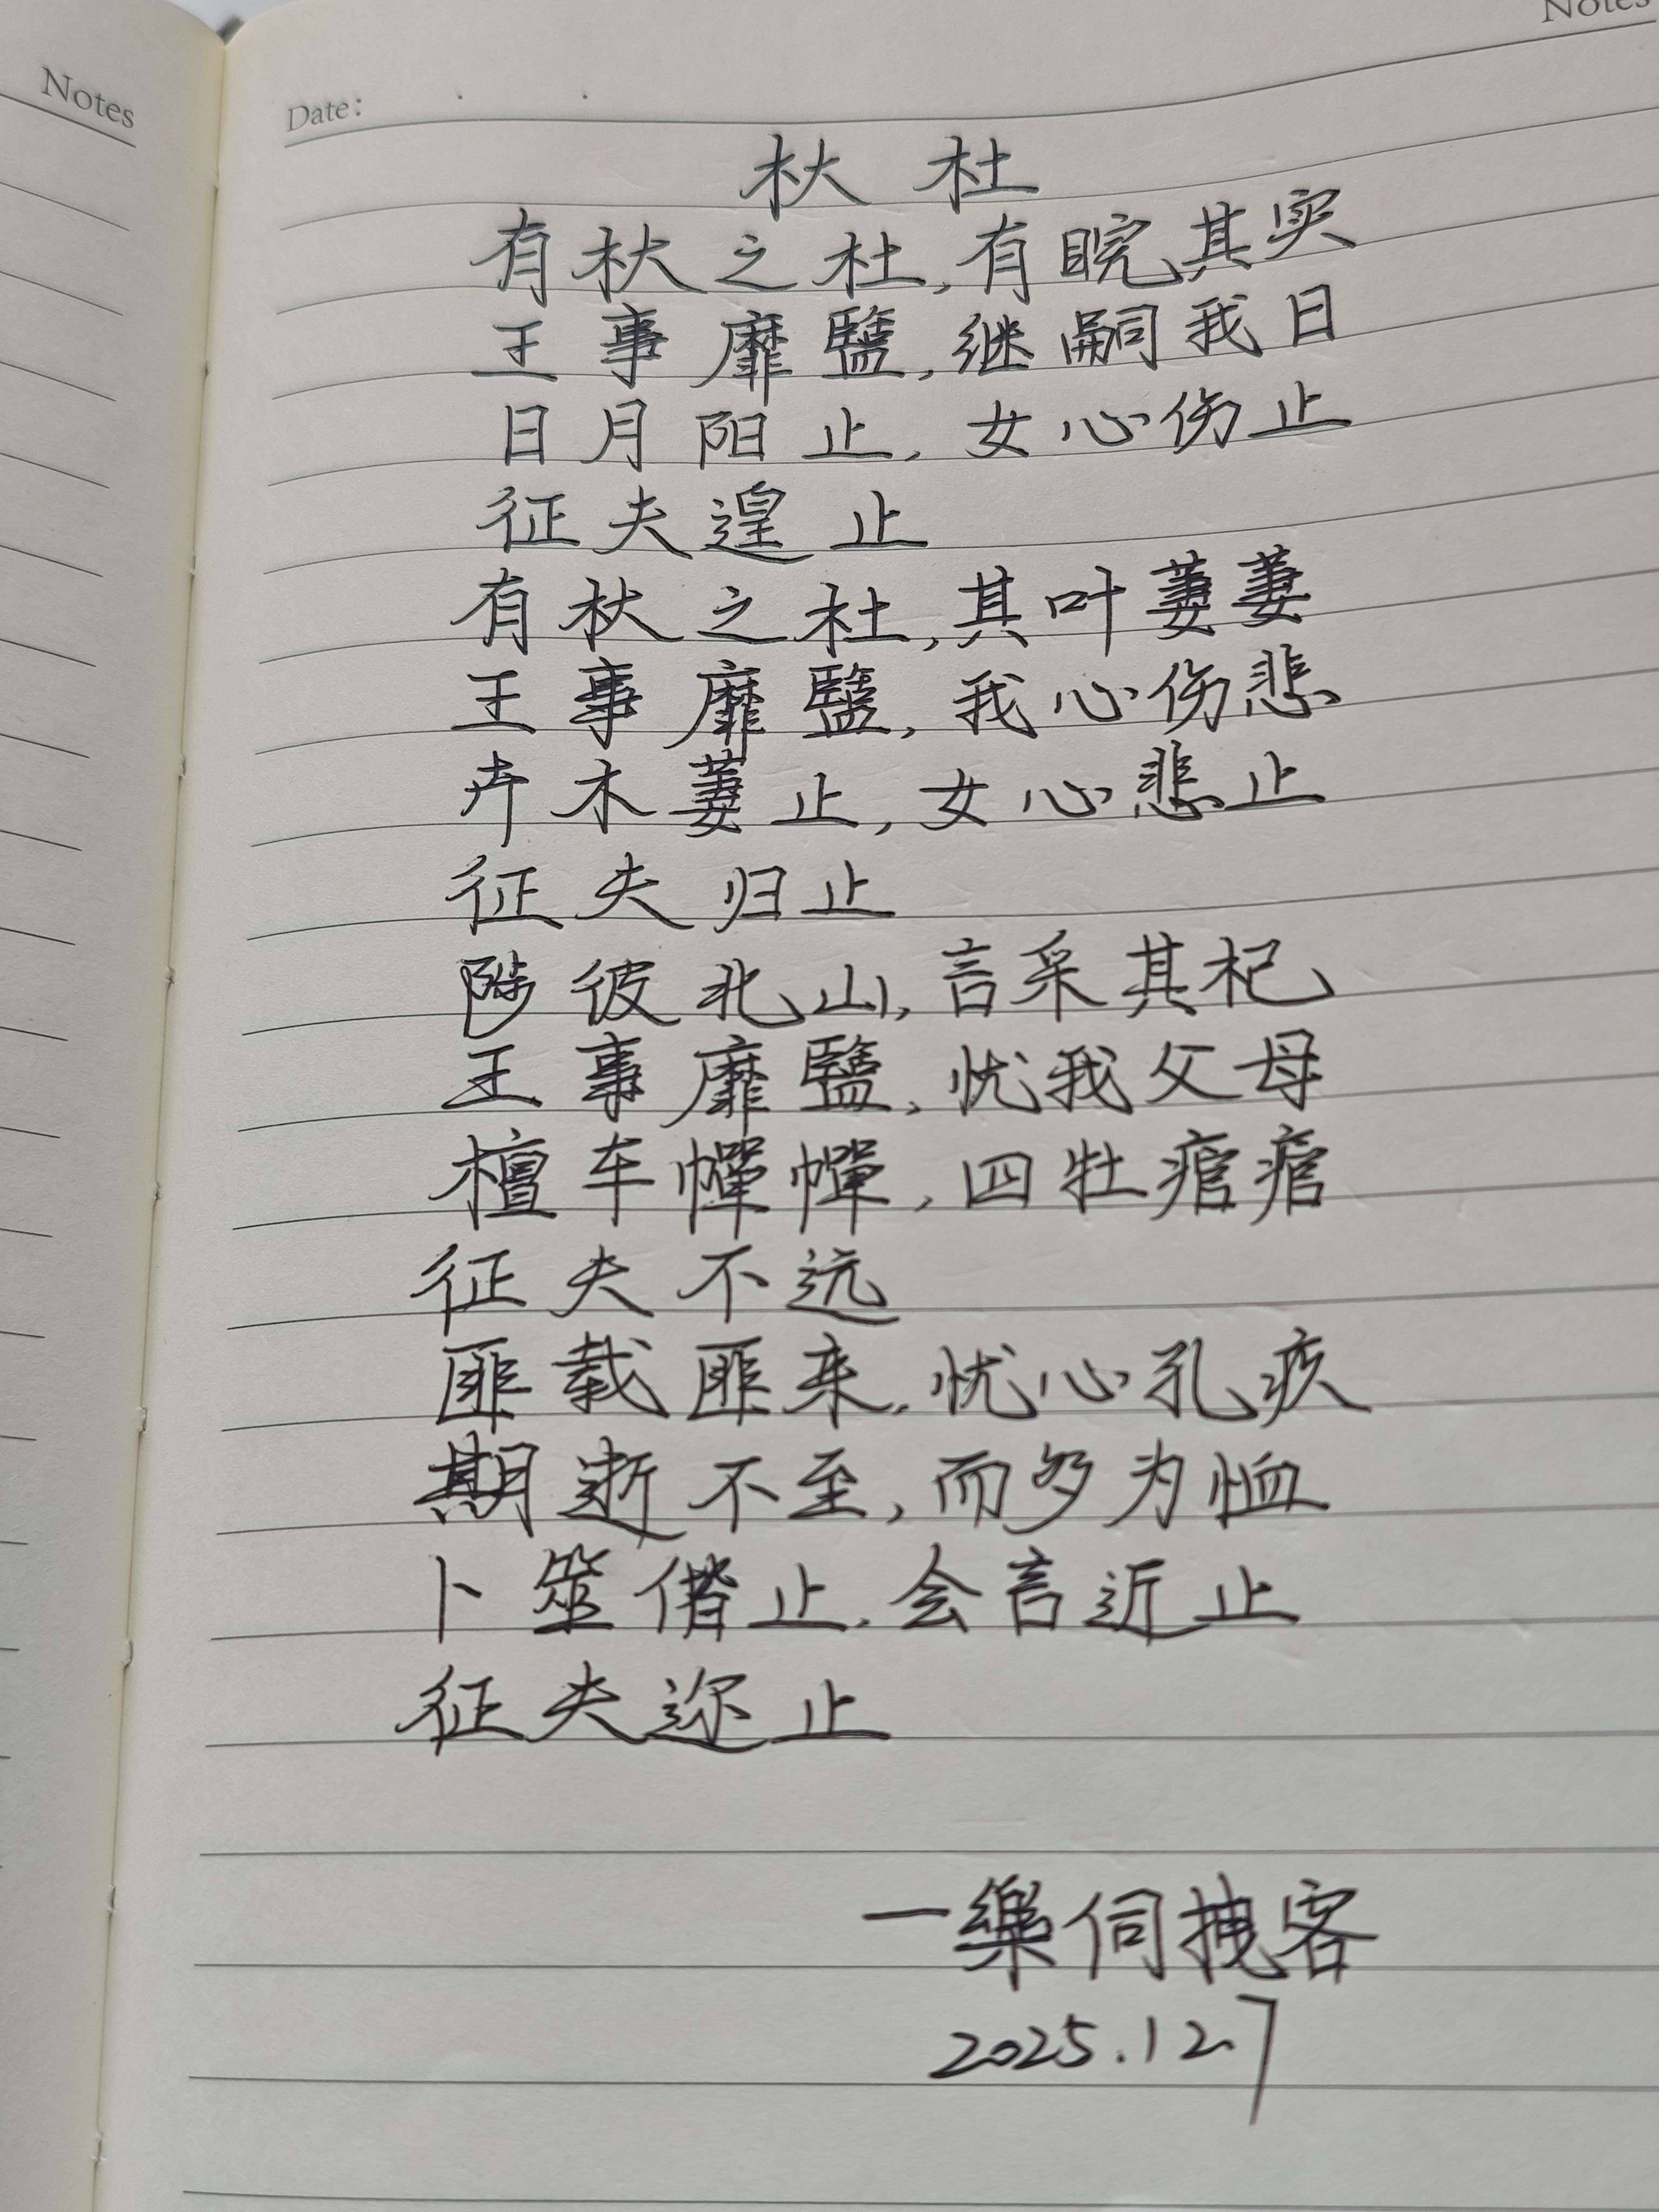 Notes
Notes
Date:
杕 杜
有杕之杜,有睆其实
王事靡盬,继嗣我日
日月阳止,女心伤止
征夫遑止
有杕之杜,其叶萋萋
王事靡盬,我心伤悲
卉木萋止,女心悲止
征夫归止
陟彼北山,言采其杞
王事靡盬,忧我父母
檀车幝幝,四牡痯痯
征夫不远
匪载匪来,忧心孔疚
期逝不至,而多为恤
卜筮偕止,会言近止
征夫迩止
一樂伺拽客
2025.12.7